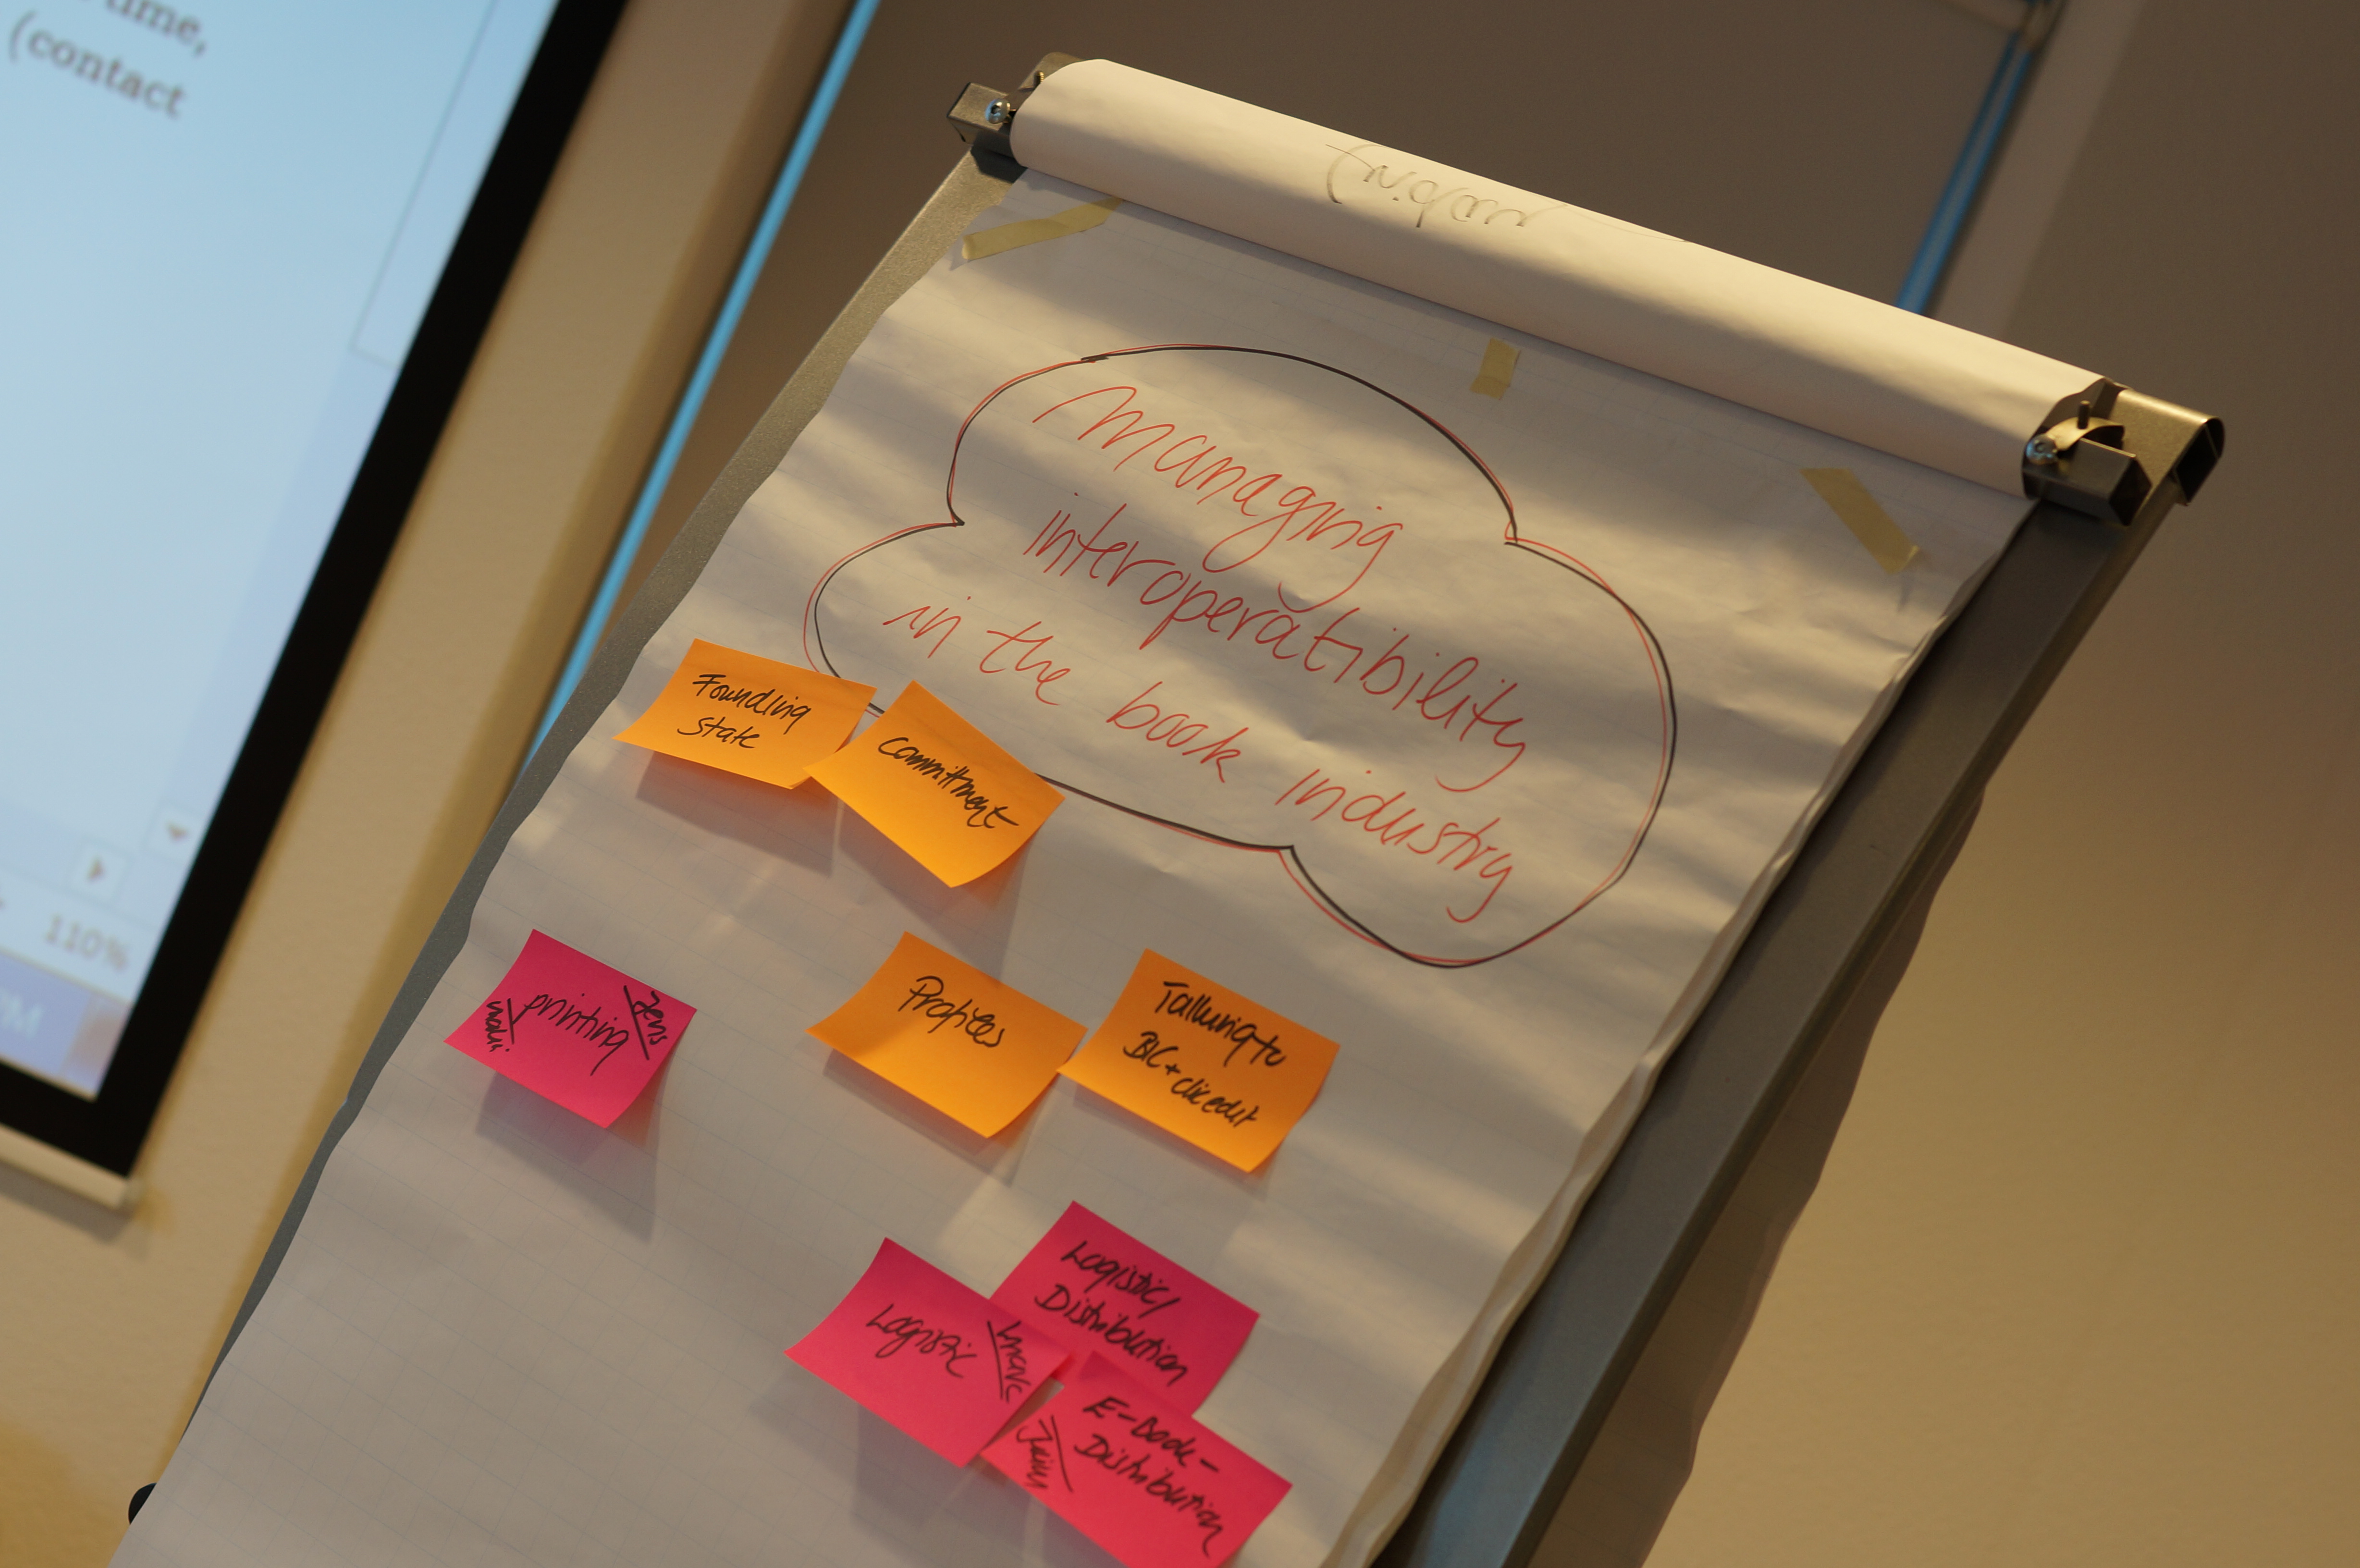 time,
(contact
110%
PM
Managing
interoperatibility
in the book industry
Founding
State
Committment
printing
Jens
Profiles
Talking to
BIC + clic edit
Logistic/
Distribution
Logistic
E-Book-
Distribution